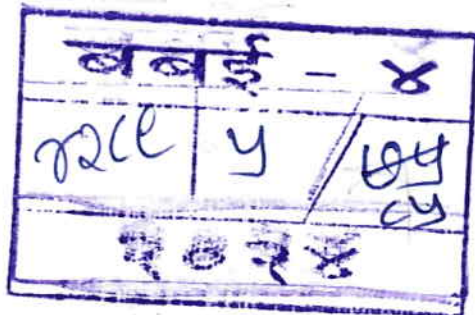 बबई - ४
४२८९ ५ / ७५
८५
२०२४